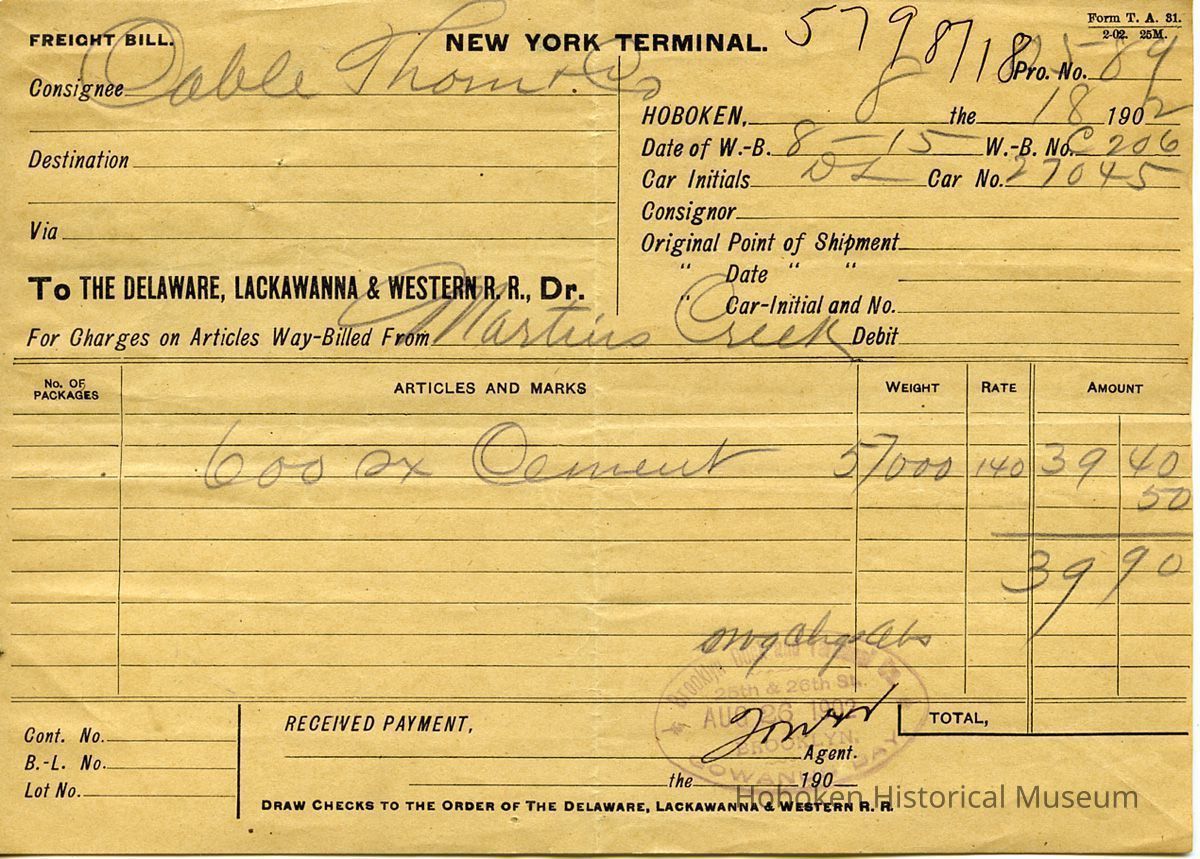 Form T. A. 31.
2-02. 25M.
FREIGHT BILL.
NEW YORK TERMINAL.
579 8/18
Pro. No. 89
Consignee Thom & Co
HOBOKEN, 8 the 18 1902
Date of W.-B. 8-15 W.-B. No. C 206
Destination
Car Initials DL Car No. 27045
Consignor
Via
Original Point of Shipment
" Date " "
To THE DELAWARE, LACKAWANNA & WESTERN R. R., Dr.
" Car-Initial and No.
For Charges on Articles Way-Billed From Martins Creek Debit
No. OF PACKAGES ARTICLES AND MARKS WEIGHT RATE AMOUNT
600 sx Cement 57000 140 39 40
50
39 90
Brooklyn Dock and Terminal Co.
25th & 26th Sts.
AUG 26 1902
BROOKLYN.
GOWANUS BAY
RECEIVED PAYMENT,
TOTAL,
Cont. No.
Agent.
B.-L. No.
the 190
Lot No.
DRAW CHECKS TO THE ORDER OF THE DELAWARE, LACKAWANNA & WESTERN R. R.
Hoboken Historical Museum